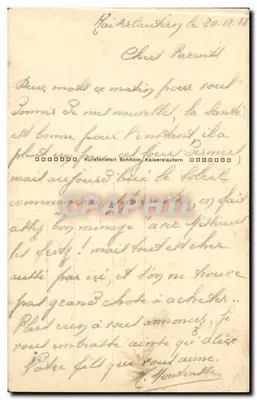 Kaiserslautern le 20.12.18
Chers Parents
Deux mots ce matin pour vous
donner de mes nouvelles, la santé
est bonne pour l'instant il a
plu ces jours derniers,
Kunstanstalt Schönin, Kaiserslautern
mais aujourd'hui le soleil
commence on fait
assez "bon ménage" avec Messieurs
les ! mais tout est cher
aussi par ici, et l'on ne trouve
pas grand chose à acheter..
Plus rien à vous annoncer, je
vous embrasse ainsi qu'à lise
Votre fils qui vous aime.
CPAPHIL